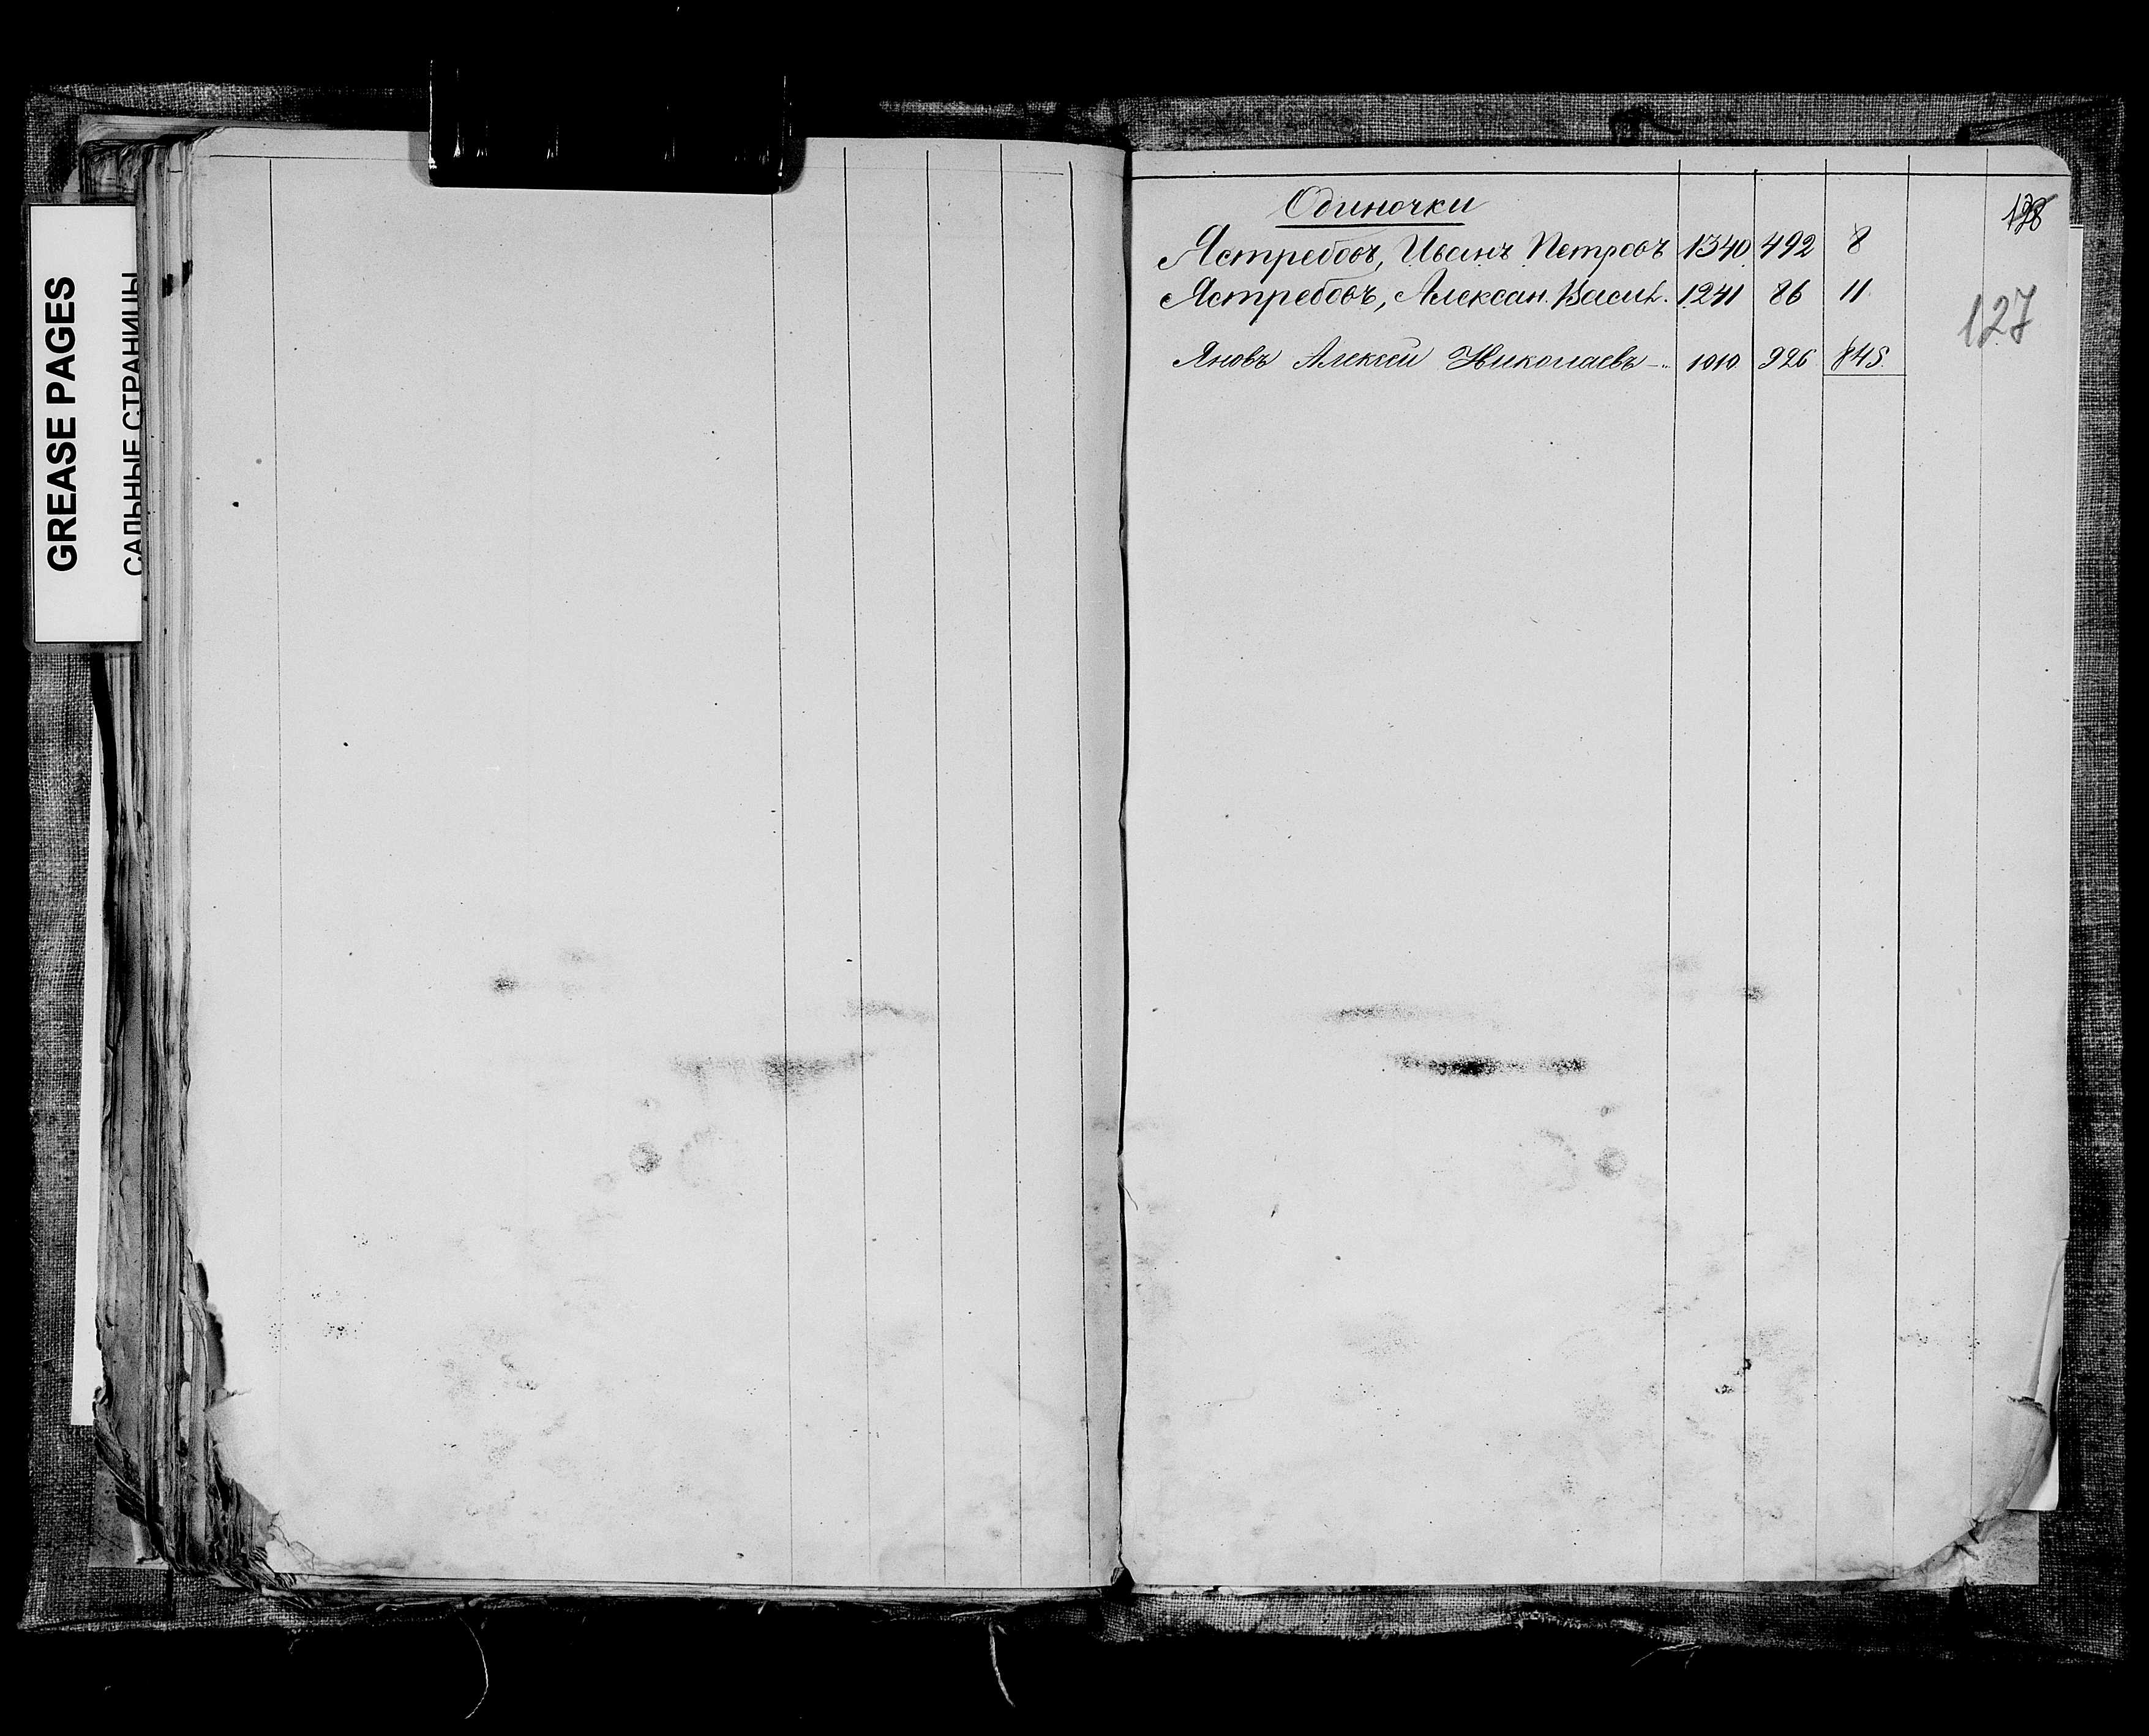 GREASE PAGES
САЛЬНЫЕ СТРАНИЦЫ
Одиночки
128
Ястребовъ, Иванъ Петровъ 1340 492 8
Ястребовъ, Алексан. Васил. 1241 86 11
127
Яновъ Алексѣй Николаевъ 1010 926 845